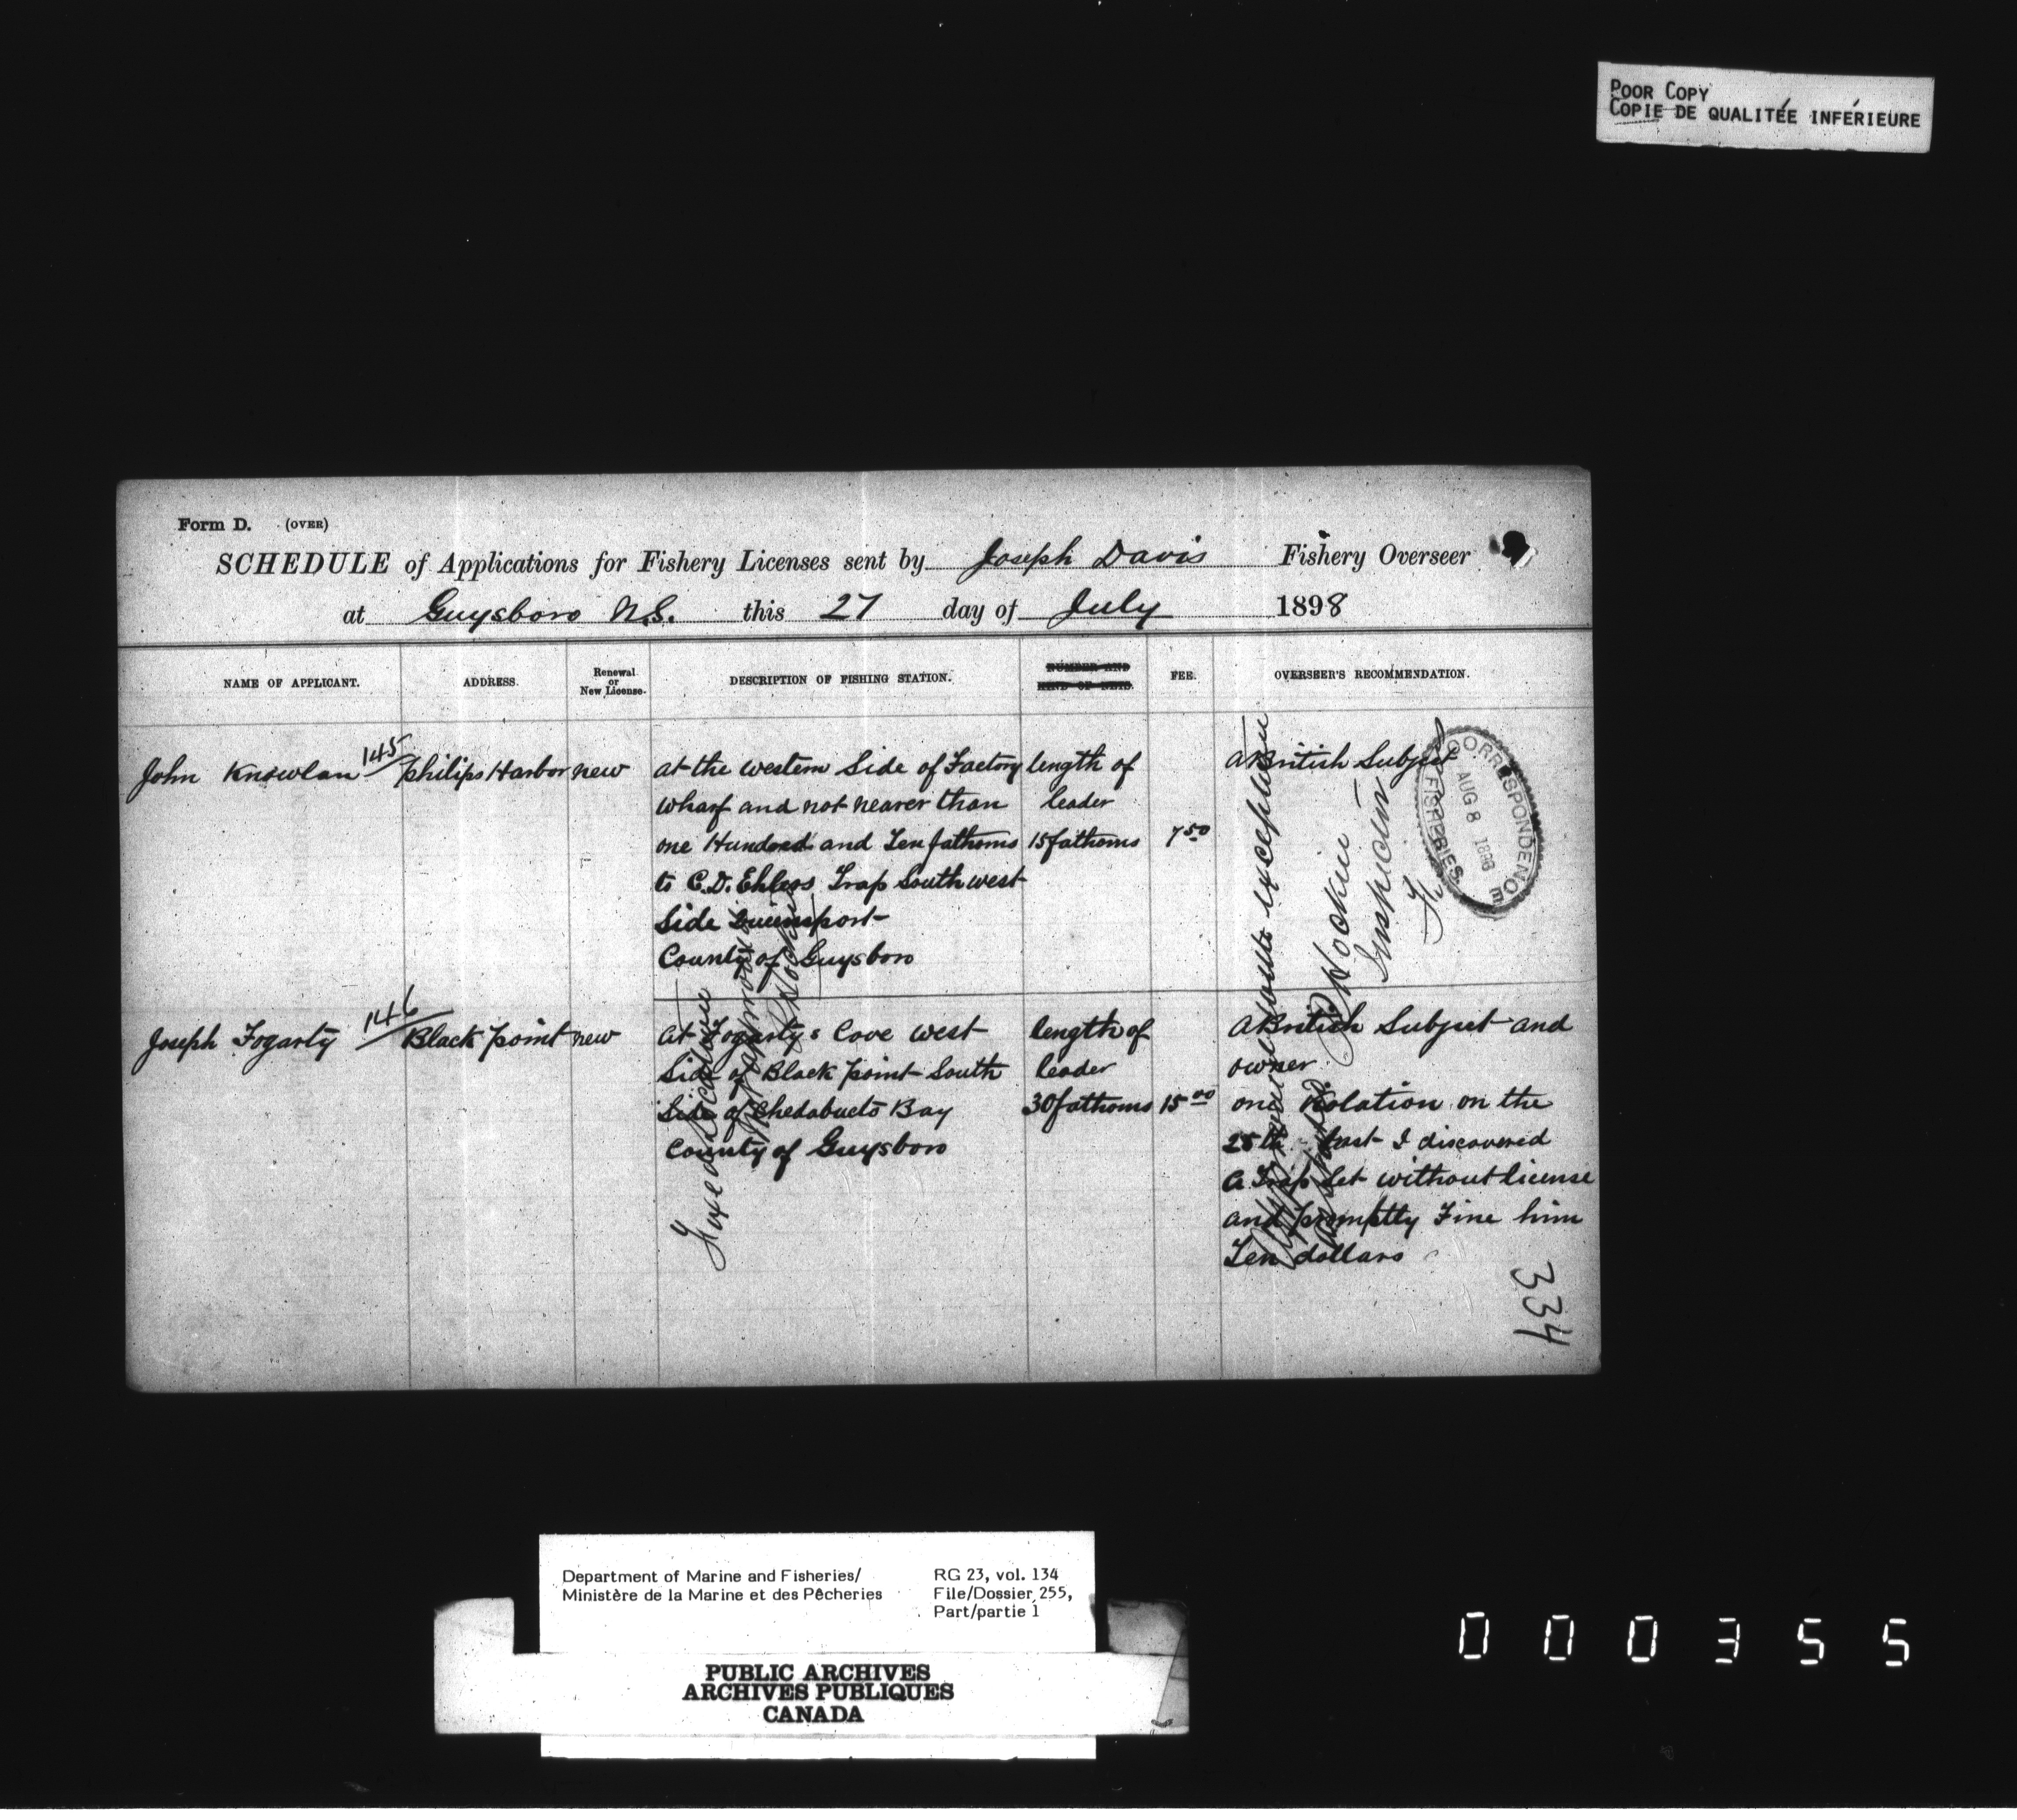 POOR COPY
COPIE DE QUALITÉE INFÉRIEURE
Form D. (OVER)
SCHEDULE of Applications for Fishery Licenses sent by Joseph Davis Fishery Overseer
at Guysboro N.S. this 27 day of July 1898
NAME OF APPLICANT.
ADDRESS.
Renewal
or
New License.
DESCRIPTION OF FISHING STATION.
NUMBER AND
KIND OF NETS.
FEE.
OVERSEER'S RECOMMENDATION.
John Knowlan 145
Philips Harbor
new
at the western Side of Factory
wharf and not nearer than
one Hundred and Ten fathoms
to C.D. Ehlers Trap South west
Side Queensport
County of Guysboro
length of
leader
15 fathoms
7 50
A British Subject
Joseph Fogarty 146
Black point
new
at Fogartys Cove west
Side of Black point South
Side of Chedabucto Bay
County of Guysboro
length of
leader
30 fathoms
15 00
A British Subject and
owner
one Violation on the
25th I discovered
a Trap Set without license
and promptly Fine him
Ten dollars
Hockin
Inspector
CORRESPONDENCE
AUG 8 1898
FISHERIES
334
Department of Marine and Fisheries/
Ministère de la Marine et des Pêcheries
RG 23, vol. 134
File/Dossier 255,
Part/partie 1
PUBLIC ARCHIVES
ARCHIVES PUBLIQUES
CANADA
000355